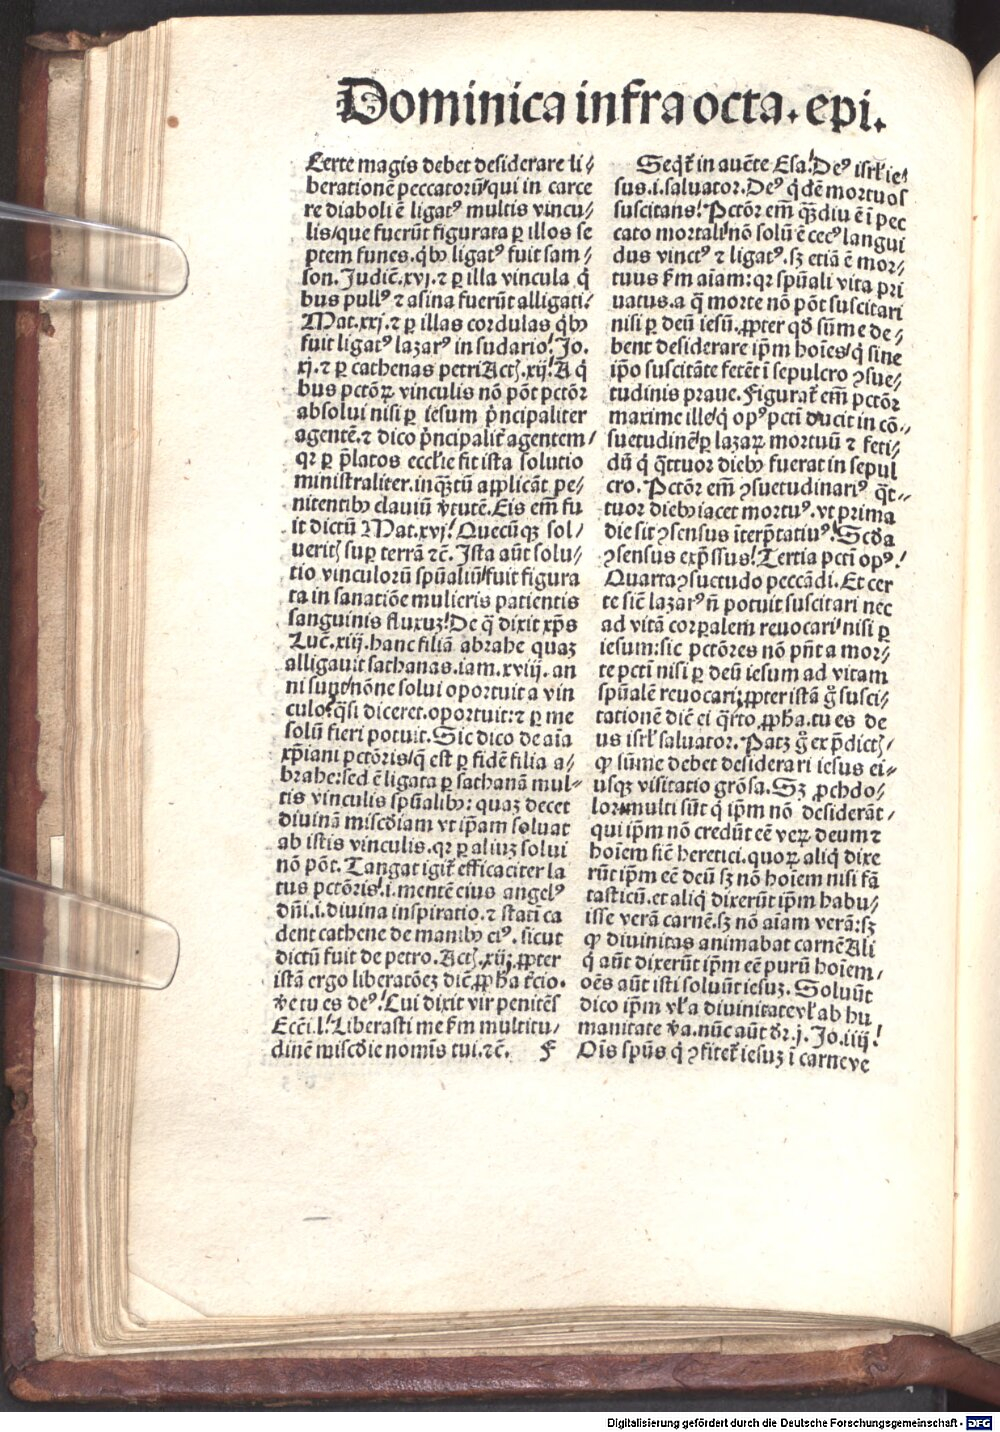 Dominica infra octa. epi.
Certe magis debet desiderare li⸗
berationē peccatorū/qui in carce
re diaboli ē ligatꝰ multis vincu⸗
lis/que fuerūt figurata ꝑ illos se
ptem funes.qͥbꝫ ligatꝰ fuit sam⸗
son. Judic̄.xvj. ⁊ ꝑ illa vincula qͥ
bus pullꝰ ⁊ asina fuerūt alligati/
Mat.xxj.⁊ ꝑ illas cordulas qͥbꝫ
fuit ligatꝰ lazarꝰ in sudario/ Jo.
xj. ⁊ ꝑ cathenas petri Act̄.xij/ A qͥ
bus pctōꝝ vinculis nō pōt pctōr
absolui nisi ꝑ iesum pͥncipaliter
agentē.⁊ dico pͥncipalit̄ agentem/
qꝛ ꝑ p̄latos eccl'ie fit ista solutio
ministraliter.inqͣꝫtū applicāt pe⸗
nitentibꝫ clauiū v̓tutē. Eis em̄ fu
it dictū Mat.xvj/ Quecūqꝫ sol⸗
uerit̄ suꝑ terrā ⁊c̄. Ista aūt solu⸗
tio vinculorū spūaliū/fuit figura
ta in sanatiōe mulieris patientis
sanguinis fluxuꝫ/ De qͣ dixit xp̄s
Luc̄.xiij.hanc filiā abrahe quaꝫ
alligauit sathanas.iam.xviij.an
ni sunt/nōne solui oportuit a vin
culo? qͣsi diceret.oportuit:⁊ ꝑ me
solū fieri potuit. Sic dico de aīa
xp̄iani pctōris/q̄ est ꝑ fidē filia a⸗
brahe:sed ē ligata ꝑ sathanā mul⸗
tis vinculis spūalibꝫ: quaꝫ decet
diuinā misc̄diam vt ip̄am soluat
ab istis vinculis.qꝛ ꝑ aliuꝫ solui
nō pōt. Tangat igit̄ efficaciter la
tus pctōris/.i.mentē eius angelꝰ
dn̄i.i.diuina inspiratio.⁊ statī ca
dent cathene de manibꝫ eiꝰ. sicut
dictū fuit de petro. Act̄.xij; ꝓpter
istā ergo liberatōeꝫ dic̄ ꝓph̄a t̄cio.
v̓e tu es deꝰ. Cui dixit vir penitēs
Ecc̄i.l/ Liberasti me ẜm multitu⸗
dinē misc̄die nomīs tui.⁊c̄. F
Seqͥt̄ in auēte Esa/ Deꝰ isrl̄ ie⸗
sus.i.saluator. Deꝰ qͥ dē mortuos
suscitans/ Pctōr em̄ qͣꝫdiu ē ī pec
cato mortali/nō solū ē cecꝰ langui
dus vinctꝰ ⁊ ligatꝰ.sꝫ etiā ē mor⸗
tuus ẜm aīam:qꝛ spūali vita pri
uatus.a qͣ morte nō pōt suscitari
nisi ꝑ deū iesū. ꝓpter qd̓ sūme de⸗
bent desiderare ip̄m hoīes/qͥ sine
ip̄o suscitāte fetēt ī sepulcro ꝯsue⸗
tudinis praue. Figurat̄ em̄ pctōr
maxime ille/qͥ opꝰ pcti ducit in cō⸗
suetudinē/ꝑ lazaꝝ mortuū ⁊ feti⸗
dū qͥ qͣttuor diebꝫ fuerat in sepul
cro. Pctōr em̄ ꝯsuetudinariꝰ qͣt⸗
tuor diebꝫ iacet mortuꝰ. vt prima
die sit ꝯsensus īterp̄tatiuꝰ/ Scd̓a
ꝯsensus exp̄ssus/ Tertia pcti opꝰ/
Quarta ꝯsuetudo peccādi. Et cer
te sic̄ lazarꝰ n̄ potuit suscitari nec
ad vitā corꝑalem reuocari/nisi ꝑ
iesum:sic pctōres nō pn̄t a mor⸗
te pcti nisi ꝑ deū iesum ad vitam
spūalē reuocari; ꝓpter istā gͦ susci⸗
tationē dic̄ ei qͣrto ꝓph̄a.tu es de
us isrl̄ saluator. Patꝫ gͦ ex p̄dict̄/
ꝙ sūme debet desiderari iesus ei⸗
usqꝫ visitatio grōsa. Sꝫ ꝓchdo⸗
lor multi sūt qͥ ip̄m nō desiderāt/
qui ip̄m nō credūt eē veꝝ deum ⁊
hoīem sic̄ heretici.quoꝝ aliqͥ dixe
rūt ip̄m eē deū sꝫ nō hoīem nisi fā
tasticū.et aliqͥ dixerūt ip̄m habu⸗
isse verā carnē.sꝫ nō aīam verā:sꝫ
ꝙ diuinitas animabat carnē Ali
qͥ aūt dixerūt ip̄m eē purū hoīem/
oēs aūt isti soluūt iesuꝫ. Soluūt
dico ip̄m vl̓ a diuinitate vl̓ ab hu
manitate v̓a. nūc aūt d̓r.j. Jo.iiij/
Oīs spūs qͥ ꝯfitet̄ iesuꝫ ī carne ve
Digitalisierung gefördert durch die Deutsche Forschungsgemeinschaft - DFG